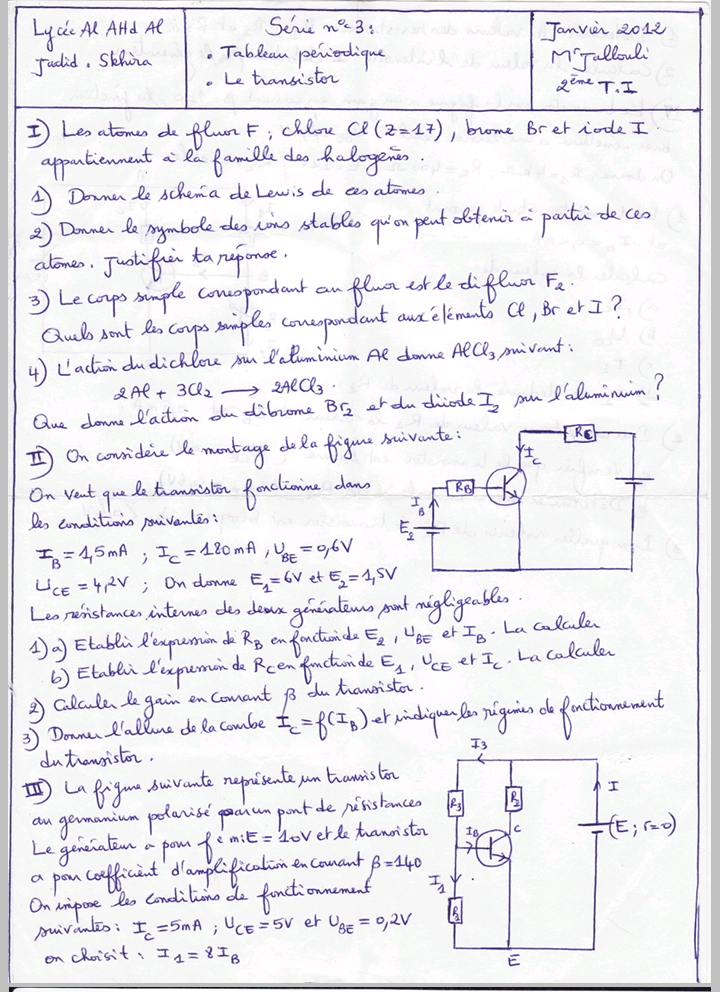 Lycée Al AHd Al
Jadid. Skhira
Série n° 3:
. Tableau périodique
. Le transistor
Janvier 2012
Mr Jallouli
2ème T.I
I) Les atomes de fluor F ; chlore Cl (Z=17), brome Br et iode I.
appartiennent à la famille des halogènes.
1) Donner le schéma de Lewis de ces atomes.
2) Donner le symbole des ions stables qu'on peut obtenir à partir de ces
atomes. Justifier ta réponse.
3) Le corps simple correspondant au fluor est le difluor F2.
Quels sont les corps simples correspondant aux éléments Cl, Br et I ?
4) L'action du dichlore sur l'aluminium Al donne AlCl3 suivant:
2Al + 3Cl2 → 2AlCl3.
Que donne l'action du dibrome Br2 et du diiode I2 sur l'aluminium ?
II) On considère le montage de la figure suivante:
On veut que le transistor fonctionne dans
les conditions suivantes:
IB = 1,5mA ; IC = 180mA , UBE = 0,6V
UCE = 4,2V ; On donne E1 = 6V et E2 = 1,5V
RC
IC
RB
IB
E2
Les résistances internes des deux générateurs sont négligeables.
1) a) Etablir l'expression de RB en fonction de E2, UBE et IB. La calculer
b) Etablir l'expression de RC en fonction de E1, UCE et IC. La calculer
2) Calculer le gain en courant β du transistor.
3) Donner l'allure de la courbe IC = f(IB) et indiquer les régimes de fonctionnement
du transistor.
III) La figure suivante représente un transistor
au germanium polarisé par un pont de résistances
Le générateur a pour f é m: E = 10V et le transistor
a pour coefficient d'amplification en courant β = 140
On impose les conditions de fonctionnement
suivantes: IC = 5mA ; UCE = 5V et UBE = 0,2V
on choisit: I1 = 8IB
I3
R3
R2
I
IB
C
(E ; r=0)
I1
R1
E